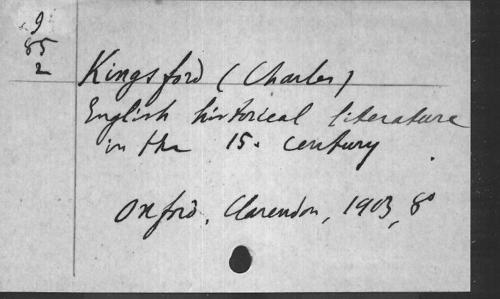 9
85
2
Kingsford (Charles)
English historical literature
in the 15. century
Oxford, Clarendon, 1903, 8°